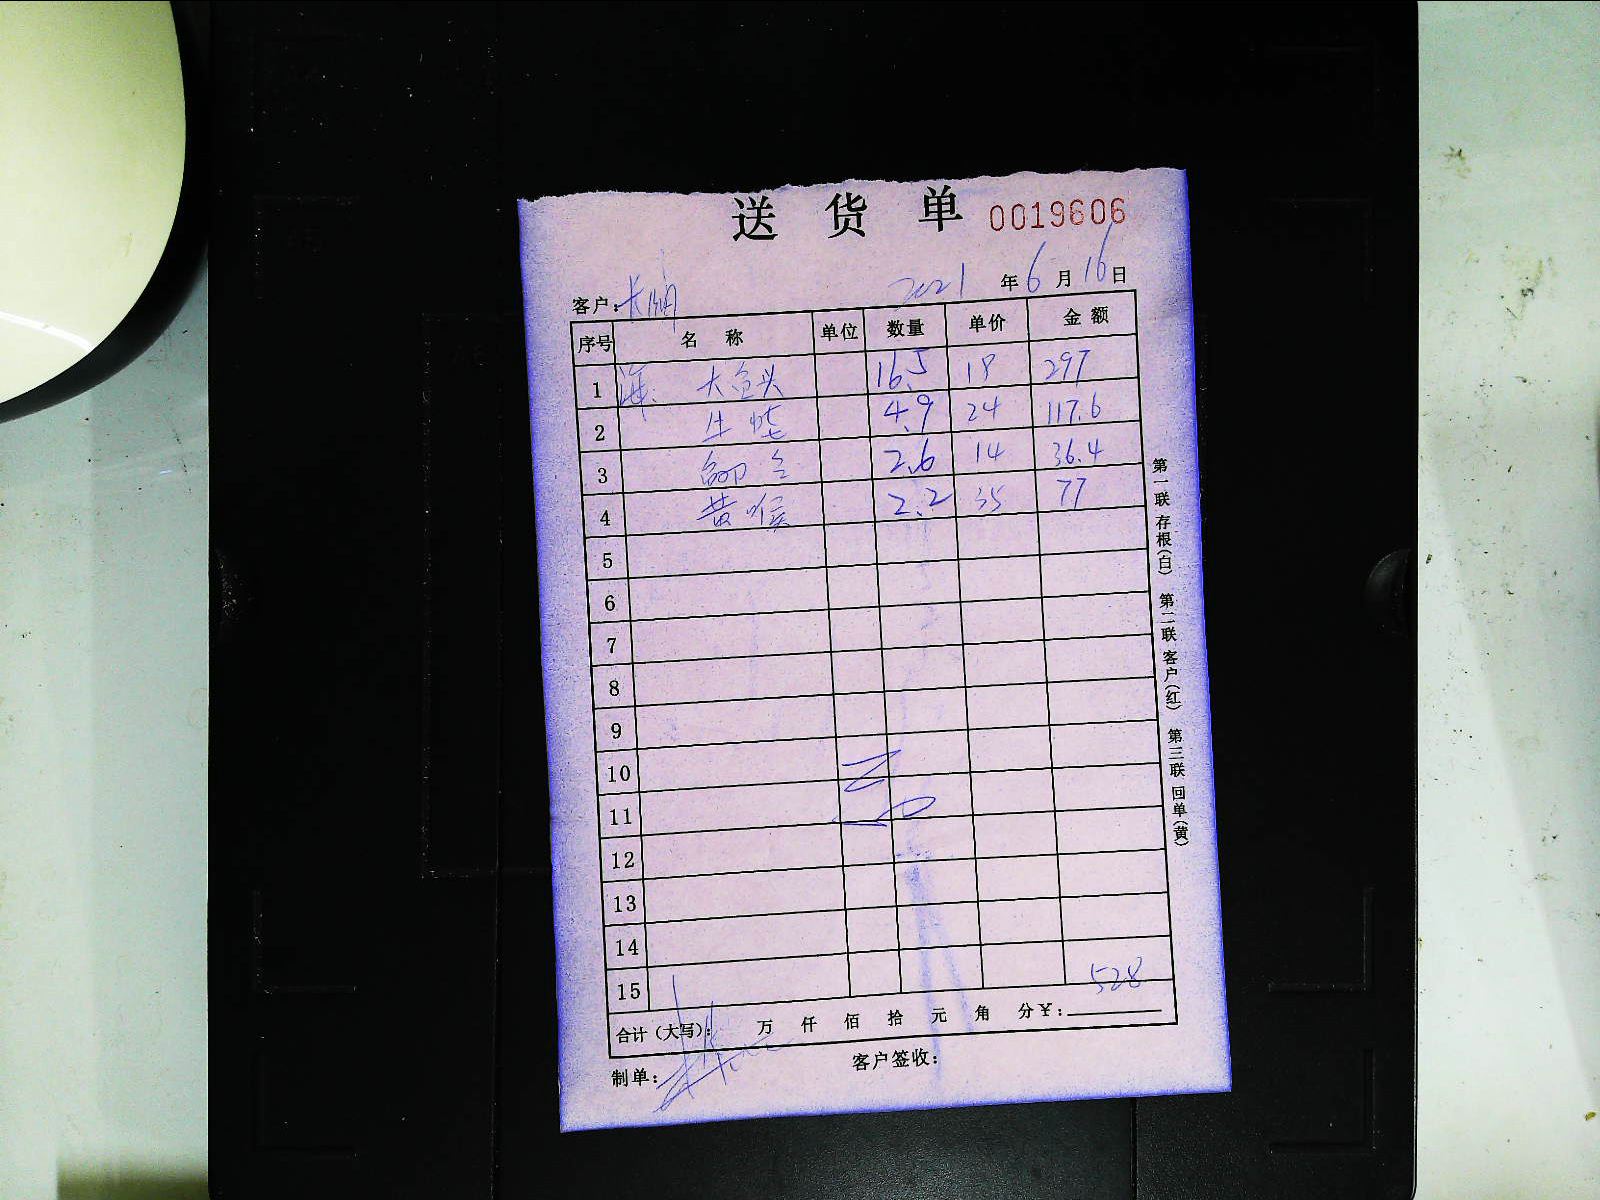 送货单 0019606
客户: 2021年6月16日
序号 名称 单位 数量 单价 金额
1 海. 大鱼头 16.5 18 297
2 生蚝 4.9 24 117.6
3 2.6 14 36.4
4 黄喉 2.2 35 77
5
6
7
8
9
10
11
12
13
14
15
528
合计(大写): 万 仟 佰 拾 元 角 分¥:
制单: 客户签收:
第一联存根(白) 第二联客户(红) 第三联回单(黄)